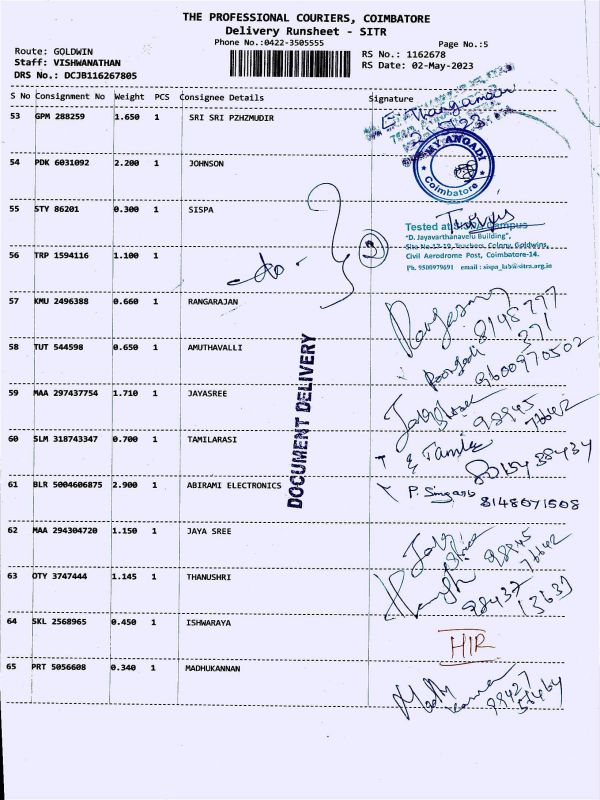 THE PROFESSIONAL COURIERS, COIMBATORE
Delivery Runsheet - SITR
Phone No.:0422-3505555
Page No.:5
Route: GOLDWIN
Staff: VISHWANATHAN
DRS No.: DCJB116267805
RS No.: 1162678
RS Date: 02-May-2023
S No Consignment No Weight PCS Consignee Details Signature
53 GPM 288259 1.650 1 SRI SRI PZHZMUDIR
54 PDK 6031092 2.200 1 JOHNSON
MY ANGADI
Coimbatore
55 STY 86201 0.300 1 SISPA
Tested at
"D. Jayavarthanavelu Building",
Site No.17-19, Teachers Colony, Goldwins,
Civil Aerodrome Post, Coimbatore-14.
Ph. 9500979691 email : sispa_lab@sitra.org.in
56 TRP 1594116 1.100 1
-do-
3
57 KMU 2496388 0.660 1 RANGARAJAN
8148797
371
58 TUT 544598 0.650 1 AMUTHAVALLI
9600970502
DOCUMENT DELIVERY
59 MAA 297437754 1.710 1 JAYASREE
98945
76642
60 SLM 318743347 0.700 1 TAMILARASI
61 BLR 5004606875 2.900 1 ABIRAMI ELECTRONICS
8148071508
62 MAA 294304720 1.150 1 JAYA SREE
98945
76642
63 OTY 3747444 1.145 1 THANUSHRI
98437
13639
64 SKL 2568965 0.450 1 ISHWARAYA
HIR
65 PRT 5056608 0.340 1 MADHUKANNAN
98427